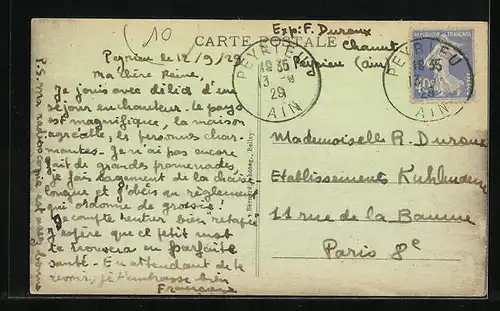 10
CARTE POSTALE
Exp: F. Duroux
Chanut
Peyrieu (ain)
PEYRIEU
18 35
13 -9
29
AIN
RÉPUBLIQUE FRANÇAISE
PEYRIEU
18 35
29
AIN
Peyrieu le 12/9/29
Ma chère Reine,
Je jouis avec délice d'un
séjour enchanteur. Le pays
est magnifique, la maison
agréable, les personnes char-
mantes. Je n'ai pas encore
fait de grandes promenades
je fais largement de la chaise
longue et j'obéis au règlement
qui ordonne de grossir!
Je compte rentrer bien retapée
J'espère que ce petit mot
te trouvera en parfaite
santé. En attendant de te
revoir, je t'embrasse bien
P.S. Ma radioscopie est
Belley
Mademoiselle R. Duroux
Etablissements
11 rue de la Baume
Paris 8e